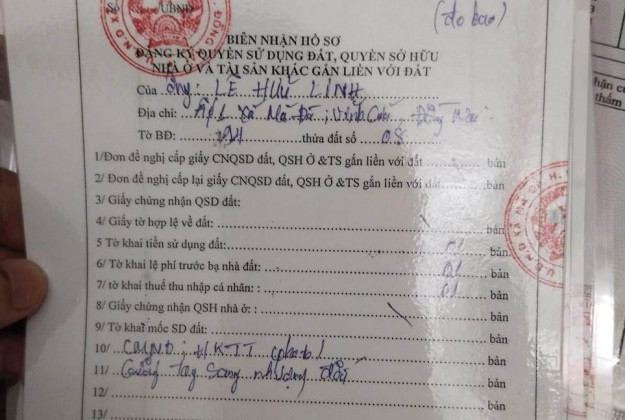 Số UBND
(đo bao)
BIÊN NHẬN HỒ SƠ
ĐĂNG KÝ QUYỀN SỬ DỤNG ĐẤT, QUYỀN SỞ HỮU
NHÀ Ở VÀ TÀI SẢN KHÁC GẮN LIỀN VỚI ĐẤT
Của ông: LÊ HỮU LINH
Địa chỉ: Ấp 1 Xã Mã Đà; Vĩnh Cửu Đồng Nai
Tờ BĐ: thửa đất số 08
1/Đơn đề nghị cấp giấy CNQSD đất, QSH Ở &TS gắn liền với đất bản
2/ Đơn đề nghị cấp lại giấy CNQSD đất, QSH Ở &TS gắn liền với đất bản
3/ Giấy chứng nhận QSD đất:
4/ Giấy tờ hợp lệ về đất: bản
5 Tờ khai tiền sử dụng đất: 01 bản
6/ Tờ khai lệ phí trước bạ nhà đất: 01 bản
7/ tờ khai thuế thu nhập cá nhân: : 01 bản
8/ Giấy chứng nhận QSH nhà ở: : bản
9/ Tờ khai mốc SD đất: bản
10/ CMND; HKTT (photo)
11/ Giấy tay sang nhượng đất
12/
13/